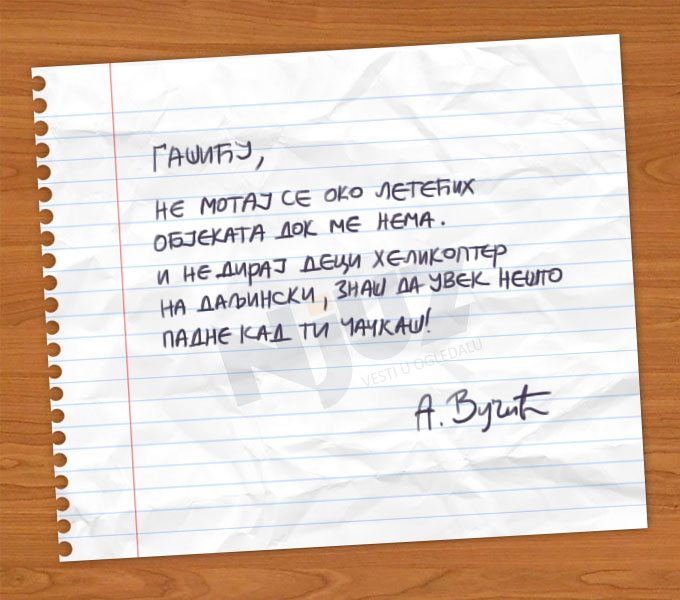 Гашићу,
не мотај се око летећих
објеката док ме нема.
и не дирај деци хеликоптер
на даљински, знаш да увек нешто
падне кад ти чачкаш!
Njuz
VESTI U OGLEDALU
А. Вучић